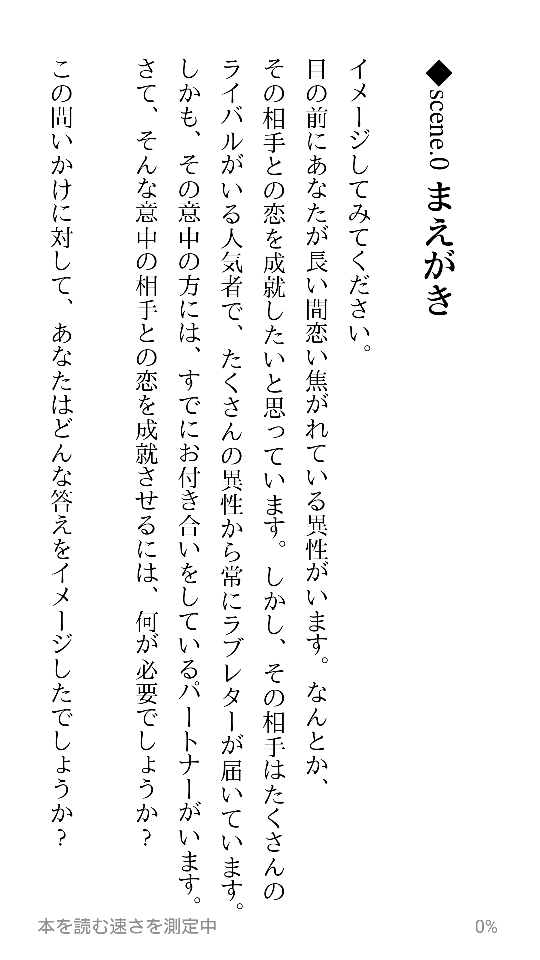 ◆scene.0 まえがき
イメージしてみてください。
目の前にあなたが長い間恋い焦がれている異性がいます。なんとか、
その相手との恋を成就したいと思っています。しかし、その相手はたくさんの
ライバルがいる人気者で、たくさんの異性から常にラブレターが届いています。
しかも、その意中の方には、すでにお付き合いをしているパートナーがいます。
さて、そんな意中の相手との恋を成就させるには、何が必要でしょうか？
この問いかけに対して、あなたはどんな答えをイメージしたでしょうか？
本を読む速さを測定中
0%